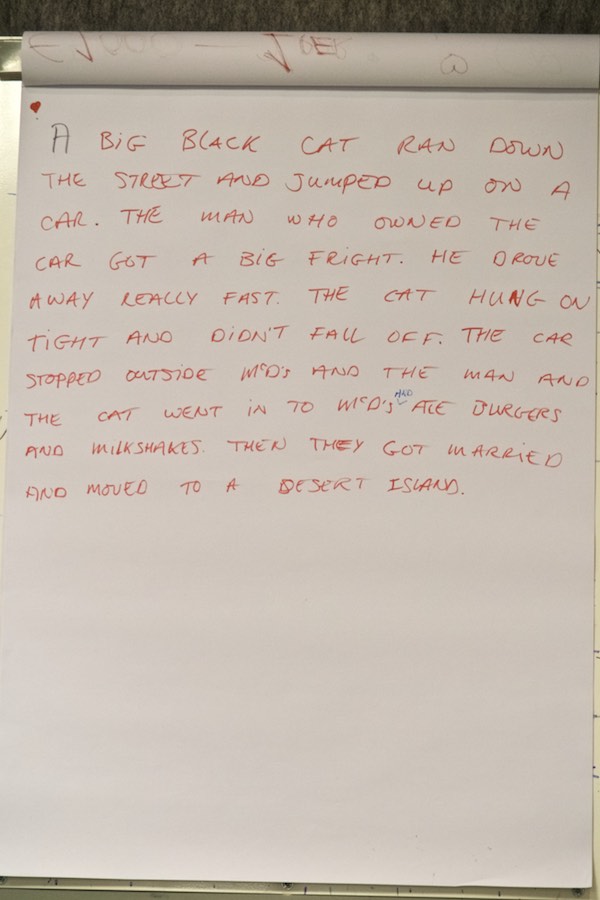 A BIG BLACK CAT RAN DOWN
THE STREET AND JUMPED UP ON A
CAR. THE MAN WHO OWNED THE
CAR GOT A BIG FRIGHT. HE DROVE
AWAY REALLY FAST. THE CAT HUNG ON
TIGHT AND DIDN'T FALL OFF. THE CAR
STOPPED OUTSIDE McD's AND THE MAN AND
THE CAT WENT IN TO McD's AND ATE BURGERS
AND MILKSHAKES. THEN THEY GOT MARRIED
AND MOVED TO A DESERT ISLAND.